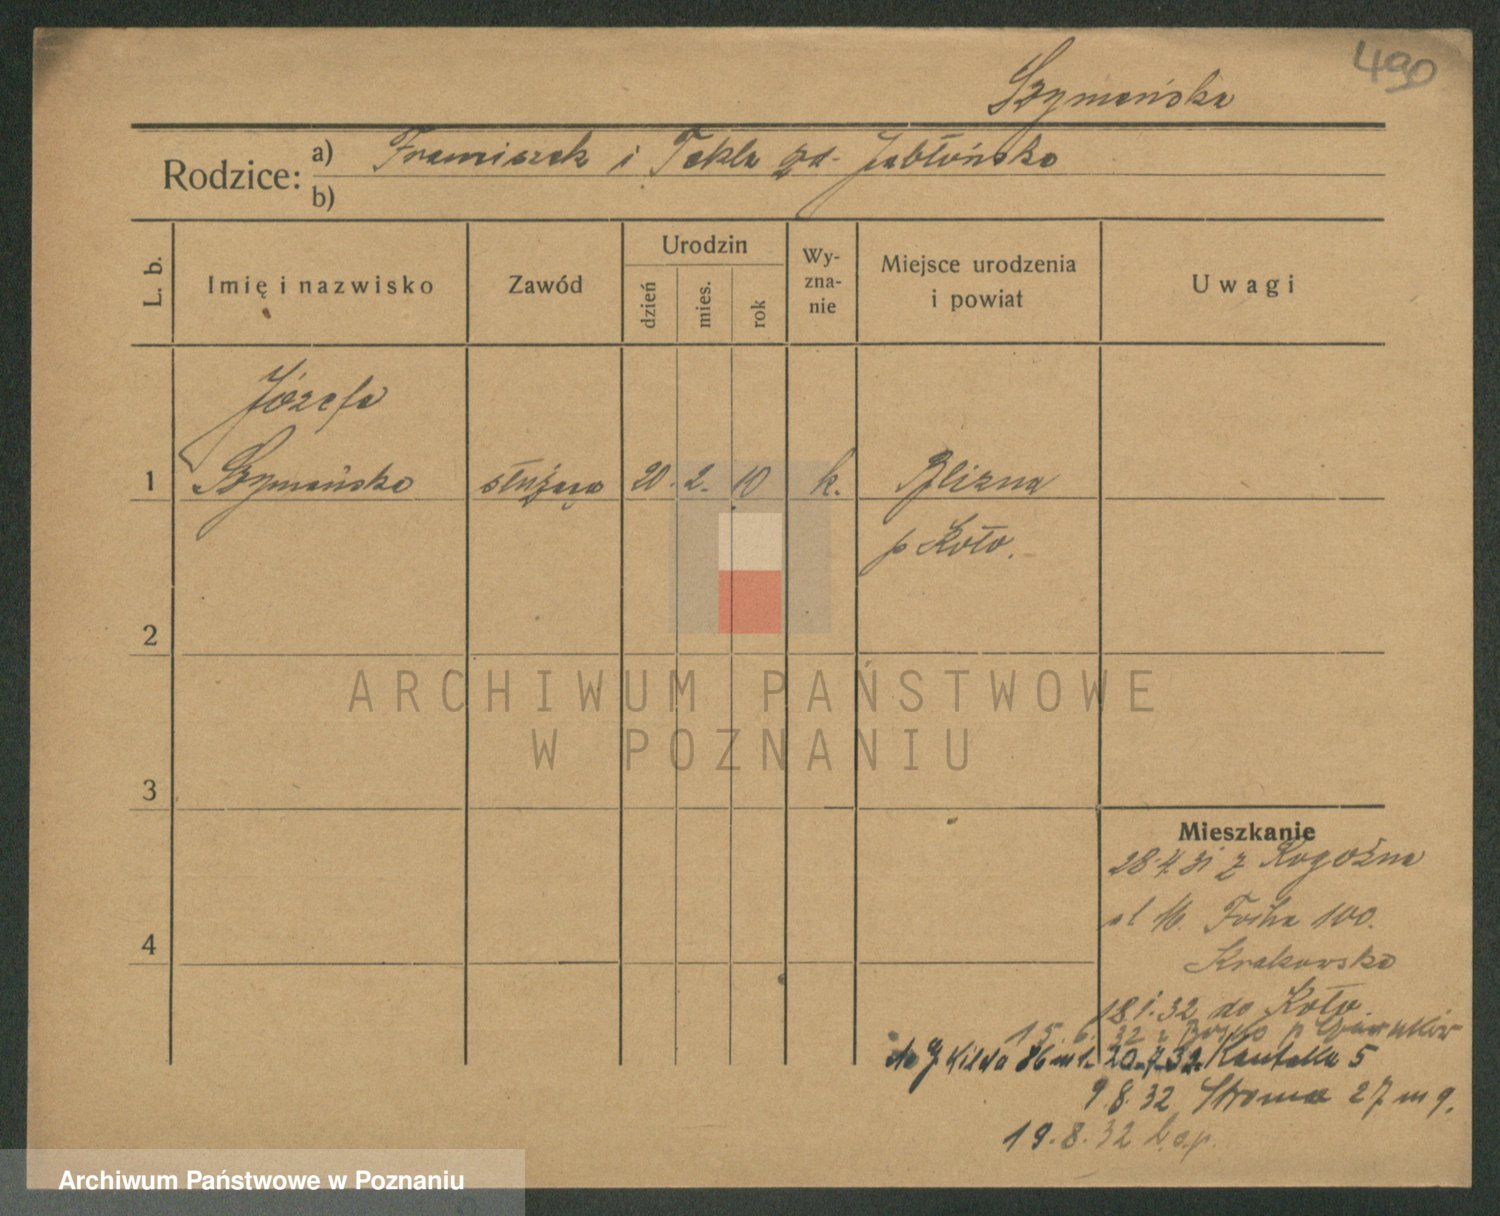 490
Szymańska
Rodzice: a) Franciszek i Tekla zd. Jabłońska
b)
L. b.
Imię i nazwisko
Zawód
Urodzin
dzień
mies.
rok
Wy-
zna-
nie
Miejsce urodzenia
i powiat
Uwagi
Józefa
1 Szymańska służąca 20. 2. 10 k. Blizna
p Koło.
2
ARCHIWUM PAŃSTWOWE
W POZNANIU
3
Mieszkanie
28.4.31 z Rogoźna
M. Focha 100.
Krakowska
4
18.1.32 do Koło
15. 6. 32 z p
20.7.32 Kantaka 5
9.8.32 Stroma 27 m 9.
19.8.32
Archiwum Państwowe w Poznaniu